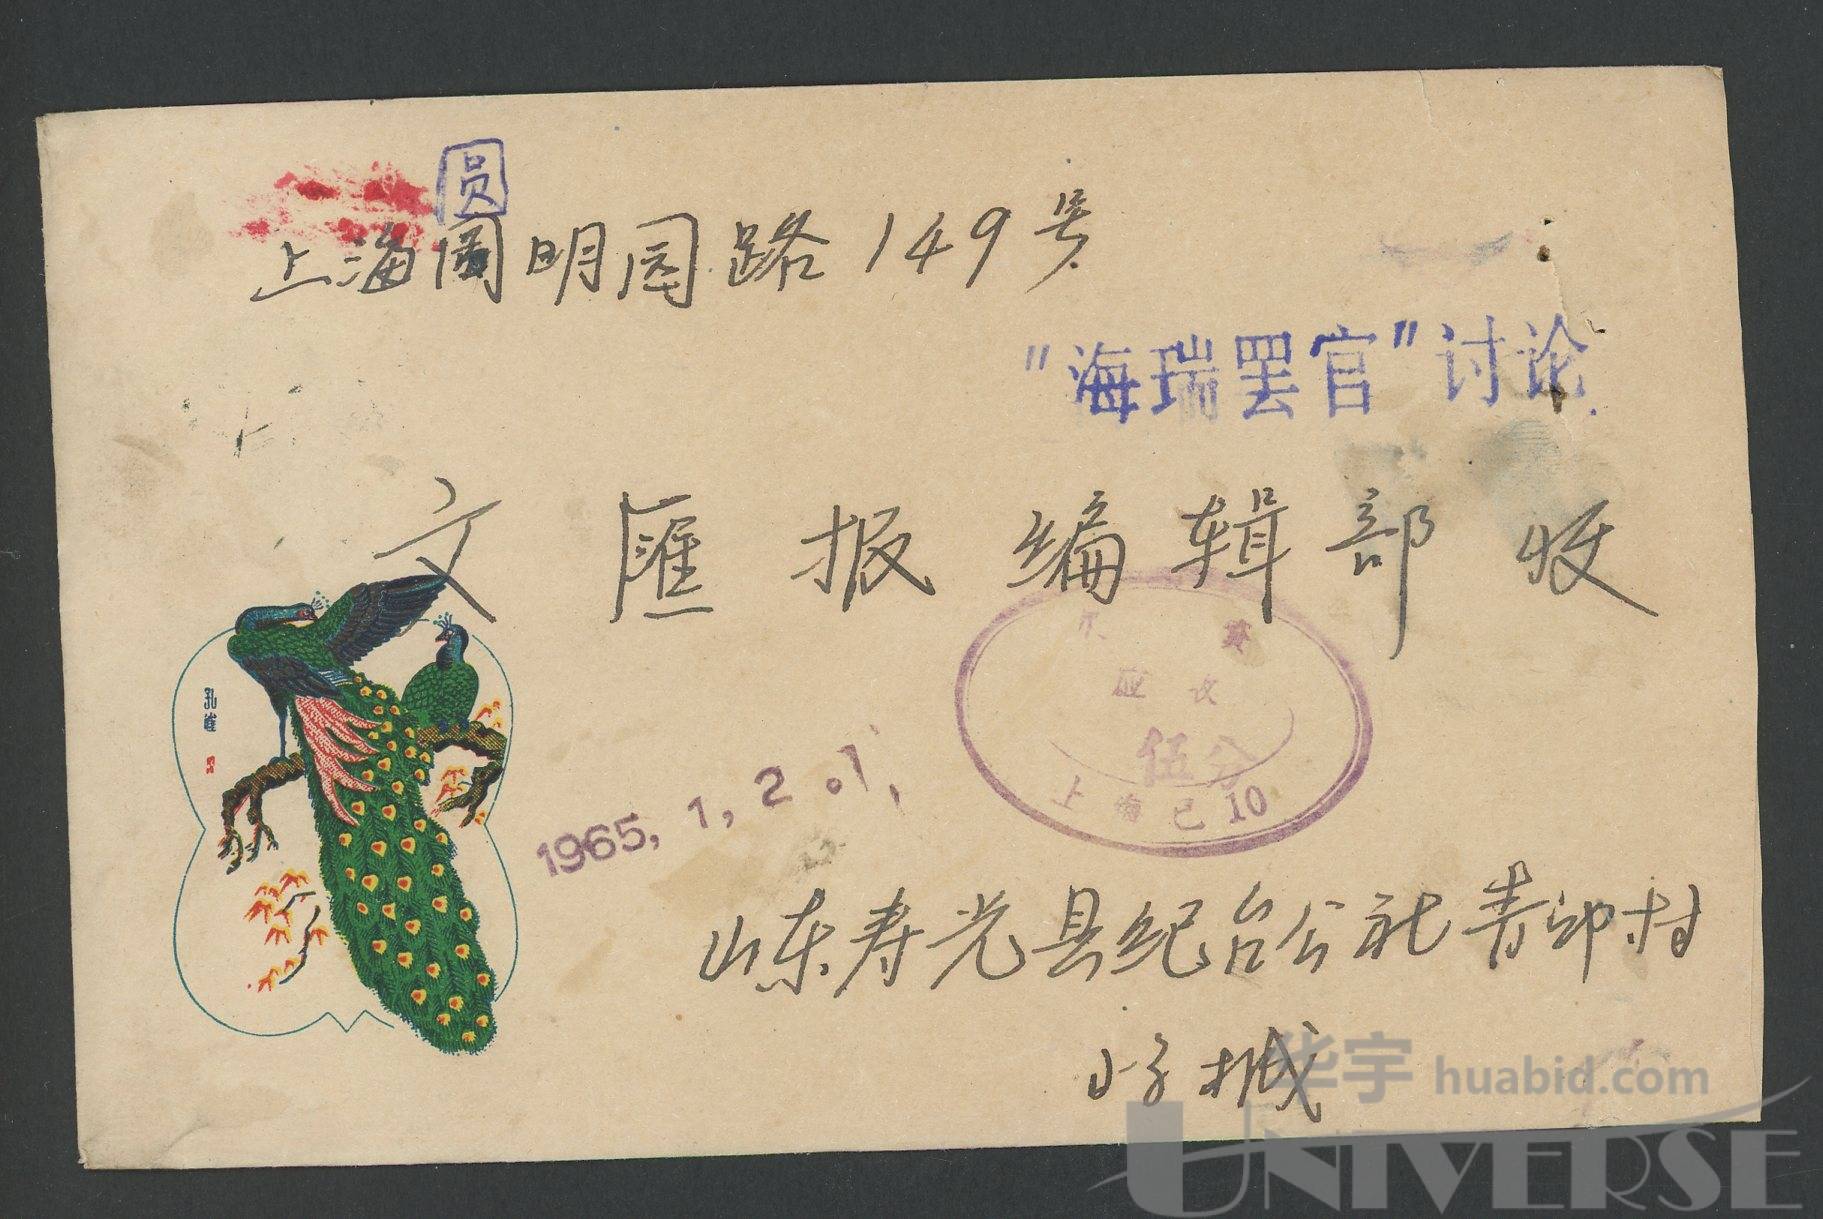 圆
上海圆明园路149号
"海瑞罢官"讨论
文匯报编辑部收
欠资
应收
伍分
上海 10
孔雀
1965,1,2
山东寿光县纪台公社青邱村
华宇 huabid.com
UNIVERSE